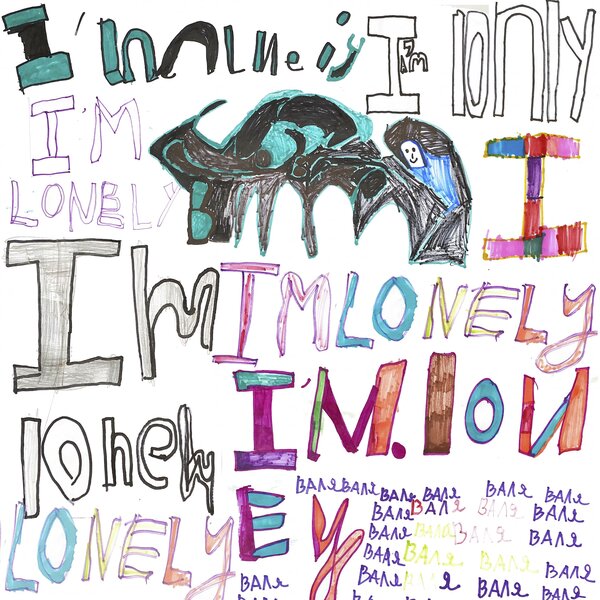 I'm lonly
I'M
LONELY
I
I'm
I'M LONELY
I'M. LON
lonely
EY
LONELY
ВАЛЯ ВАЛЯ ВАЛЯ ВАЛЯ ВАЛЯ ВАЛЯ
ВАЛЯ ВАЛЯ ВАЛЯ ВАЛЯ
ВАЛЯ ВАЛЯ ВАЛЯ ВАЛЯ
ВАЛЯ ВАЛЯ ВАЛЯ
ВАЛЯ ВАЛЯ ВАЛЯ
ВАЛЯ ВАЛЯ ВАЛЯ